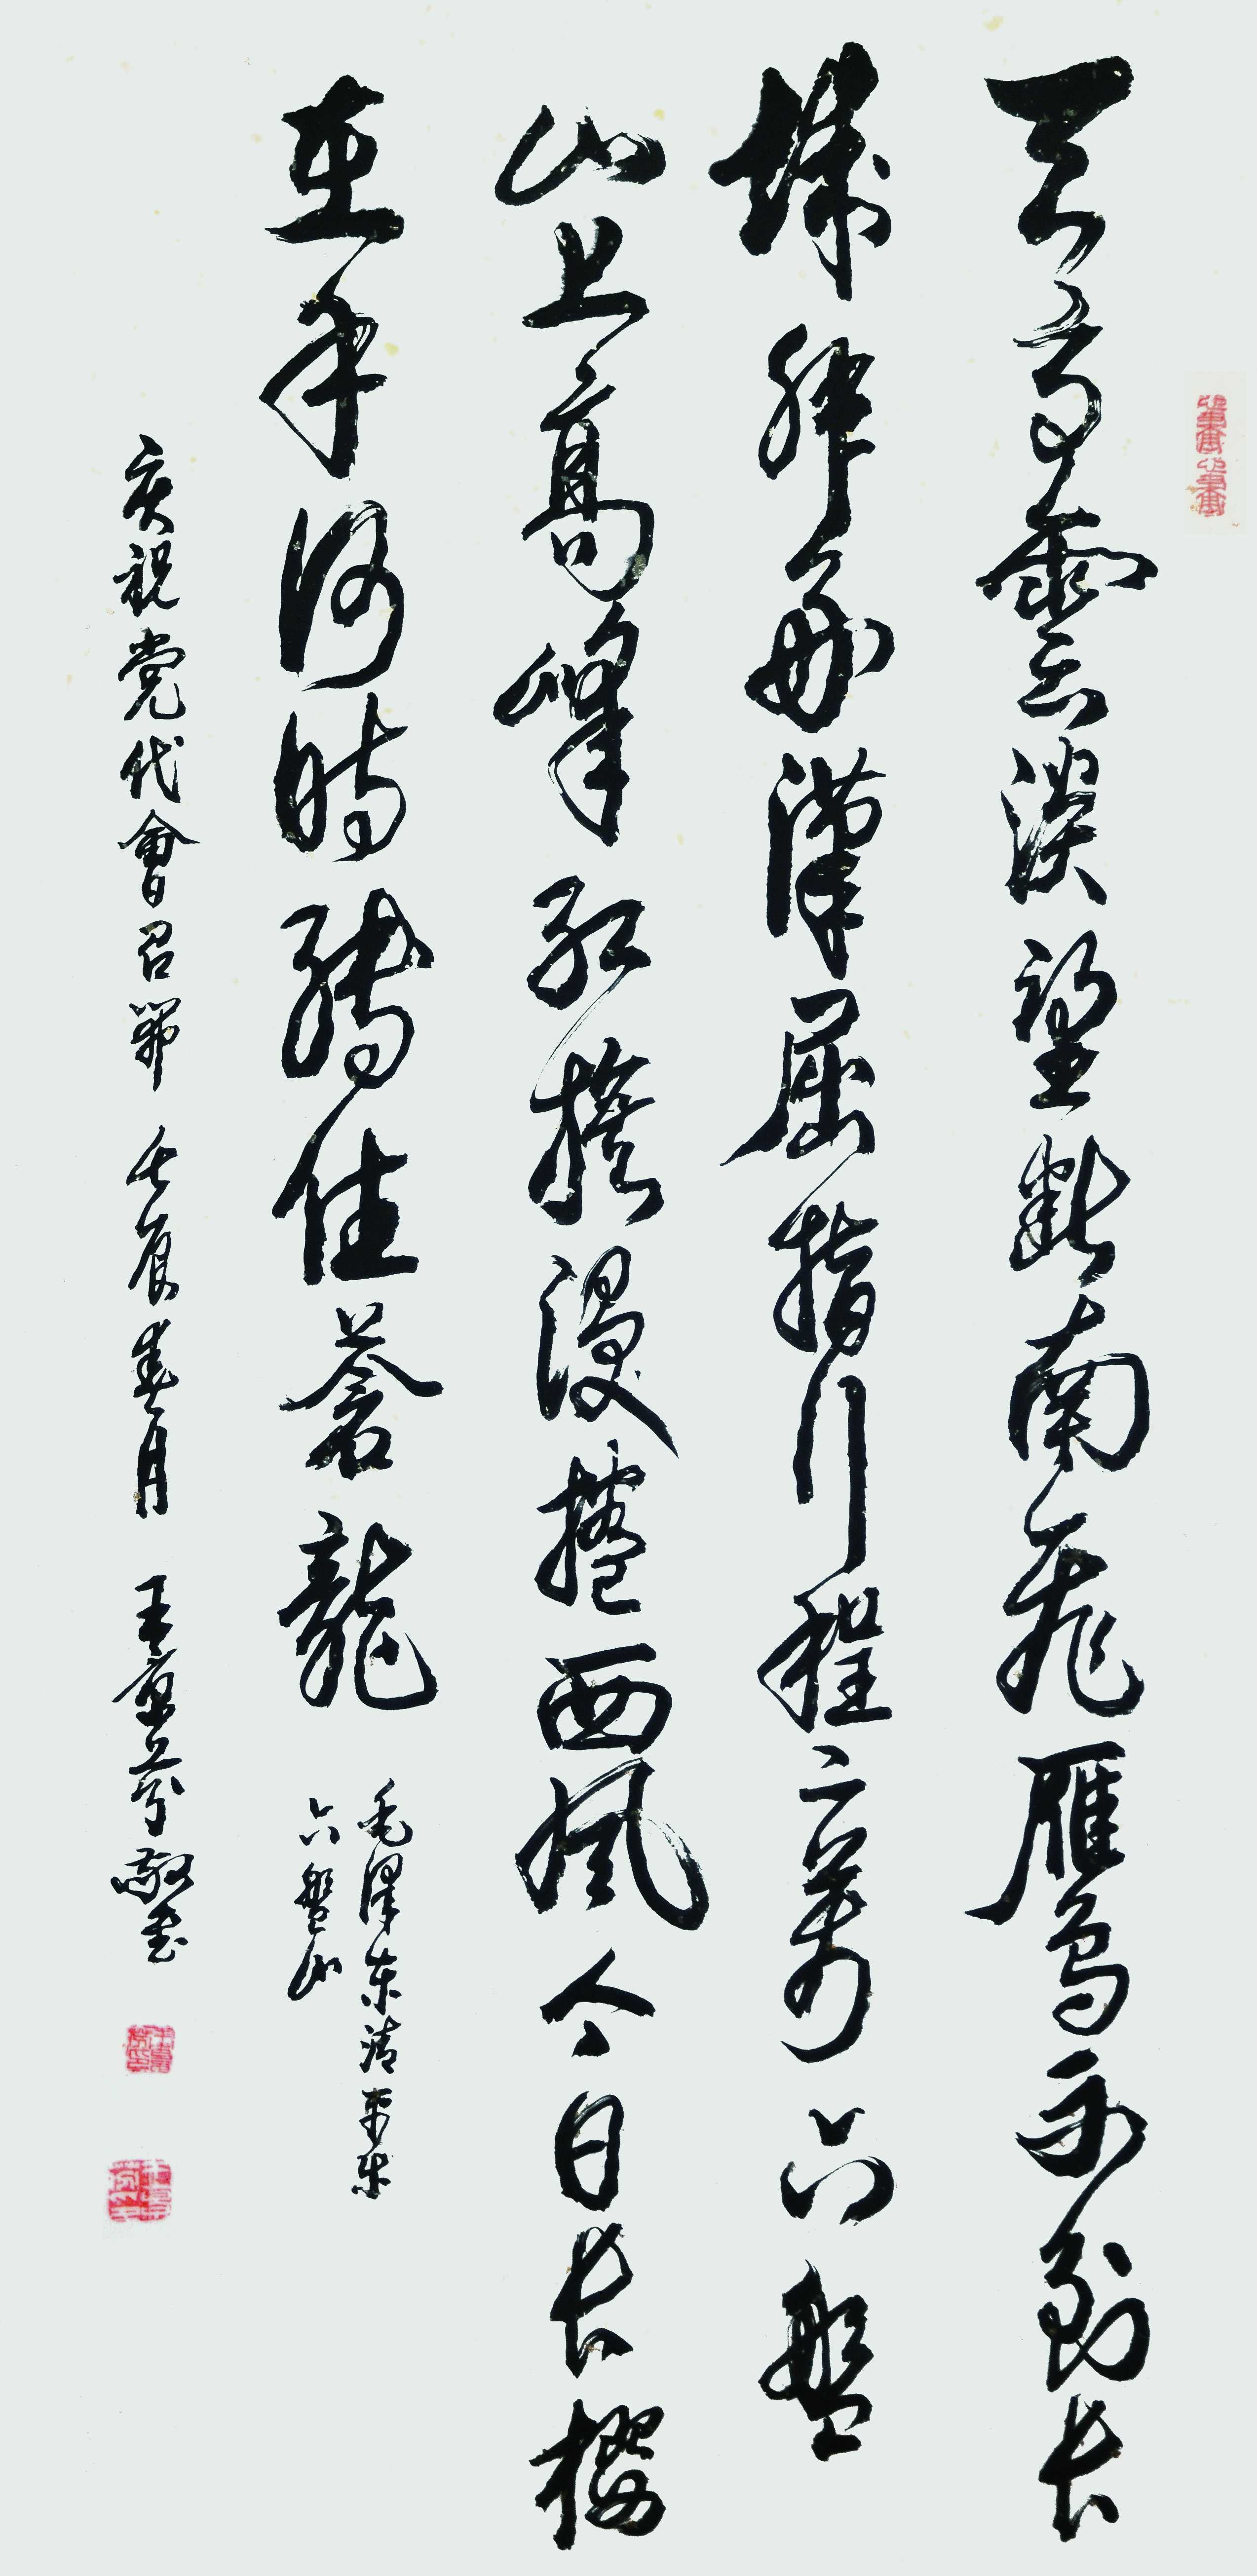 天高雲淡望斷南飛雁不到長
城非好漢屈指行程二萬六盤
山上高峰紅旗漫捲西風今日長纓
在手何時縛住蒼龍
毛澤東清平樂
六盤山
慶祝党代會召開 壬辰春月 王景芬敬書